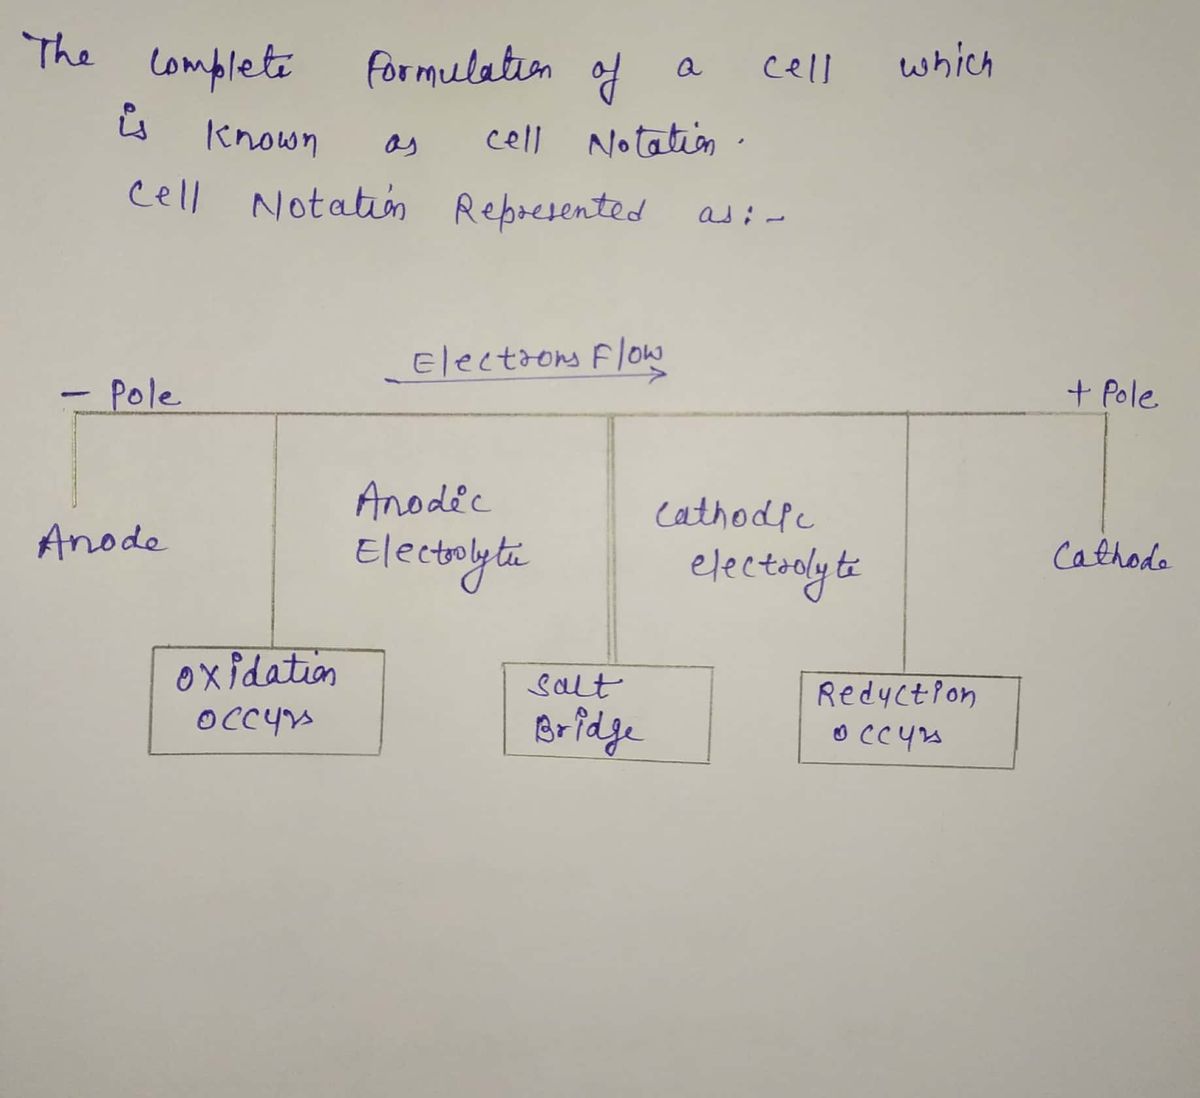 The complete formulation of a cell which
is known as cell Notation.
Cell Notation Represented as:-
Electrons Flow
- Pole
+ Pole
Anodic
Electrolyte
Cathodic
electrolyte
Anode
Cathode
Oxidation
occurs
Salt
Bridge
Reduction
occurs